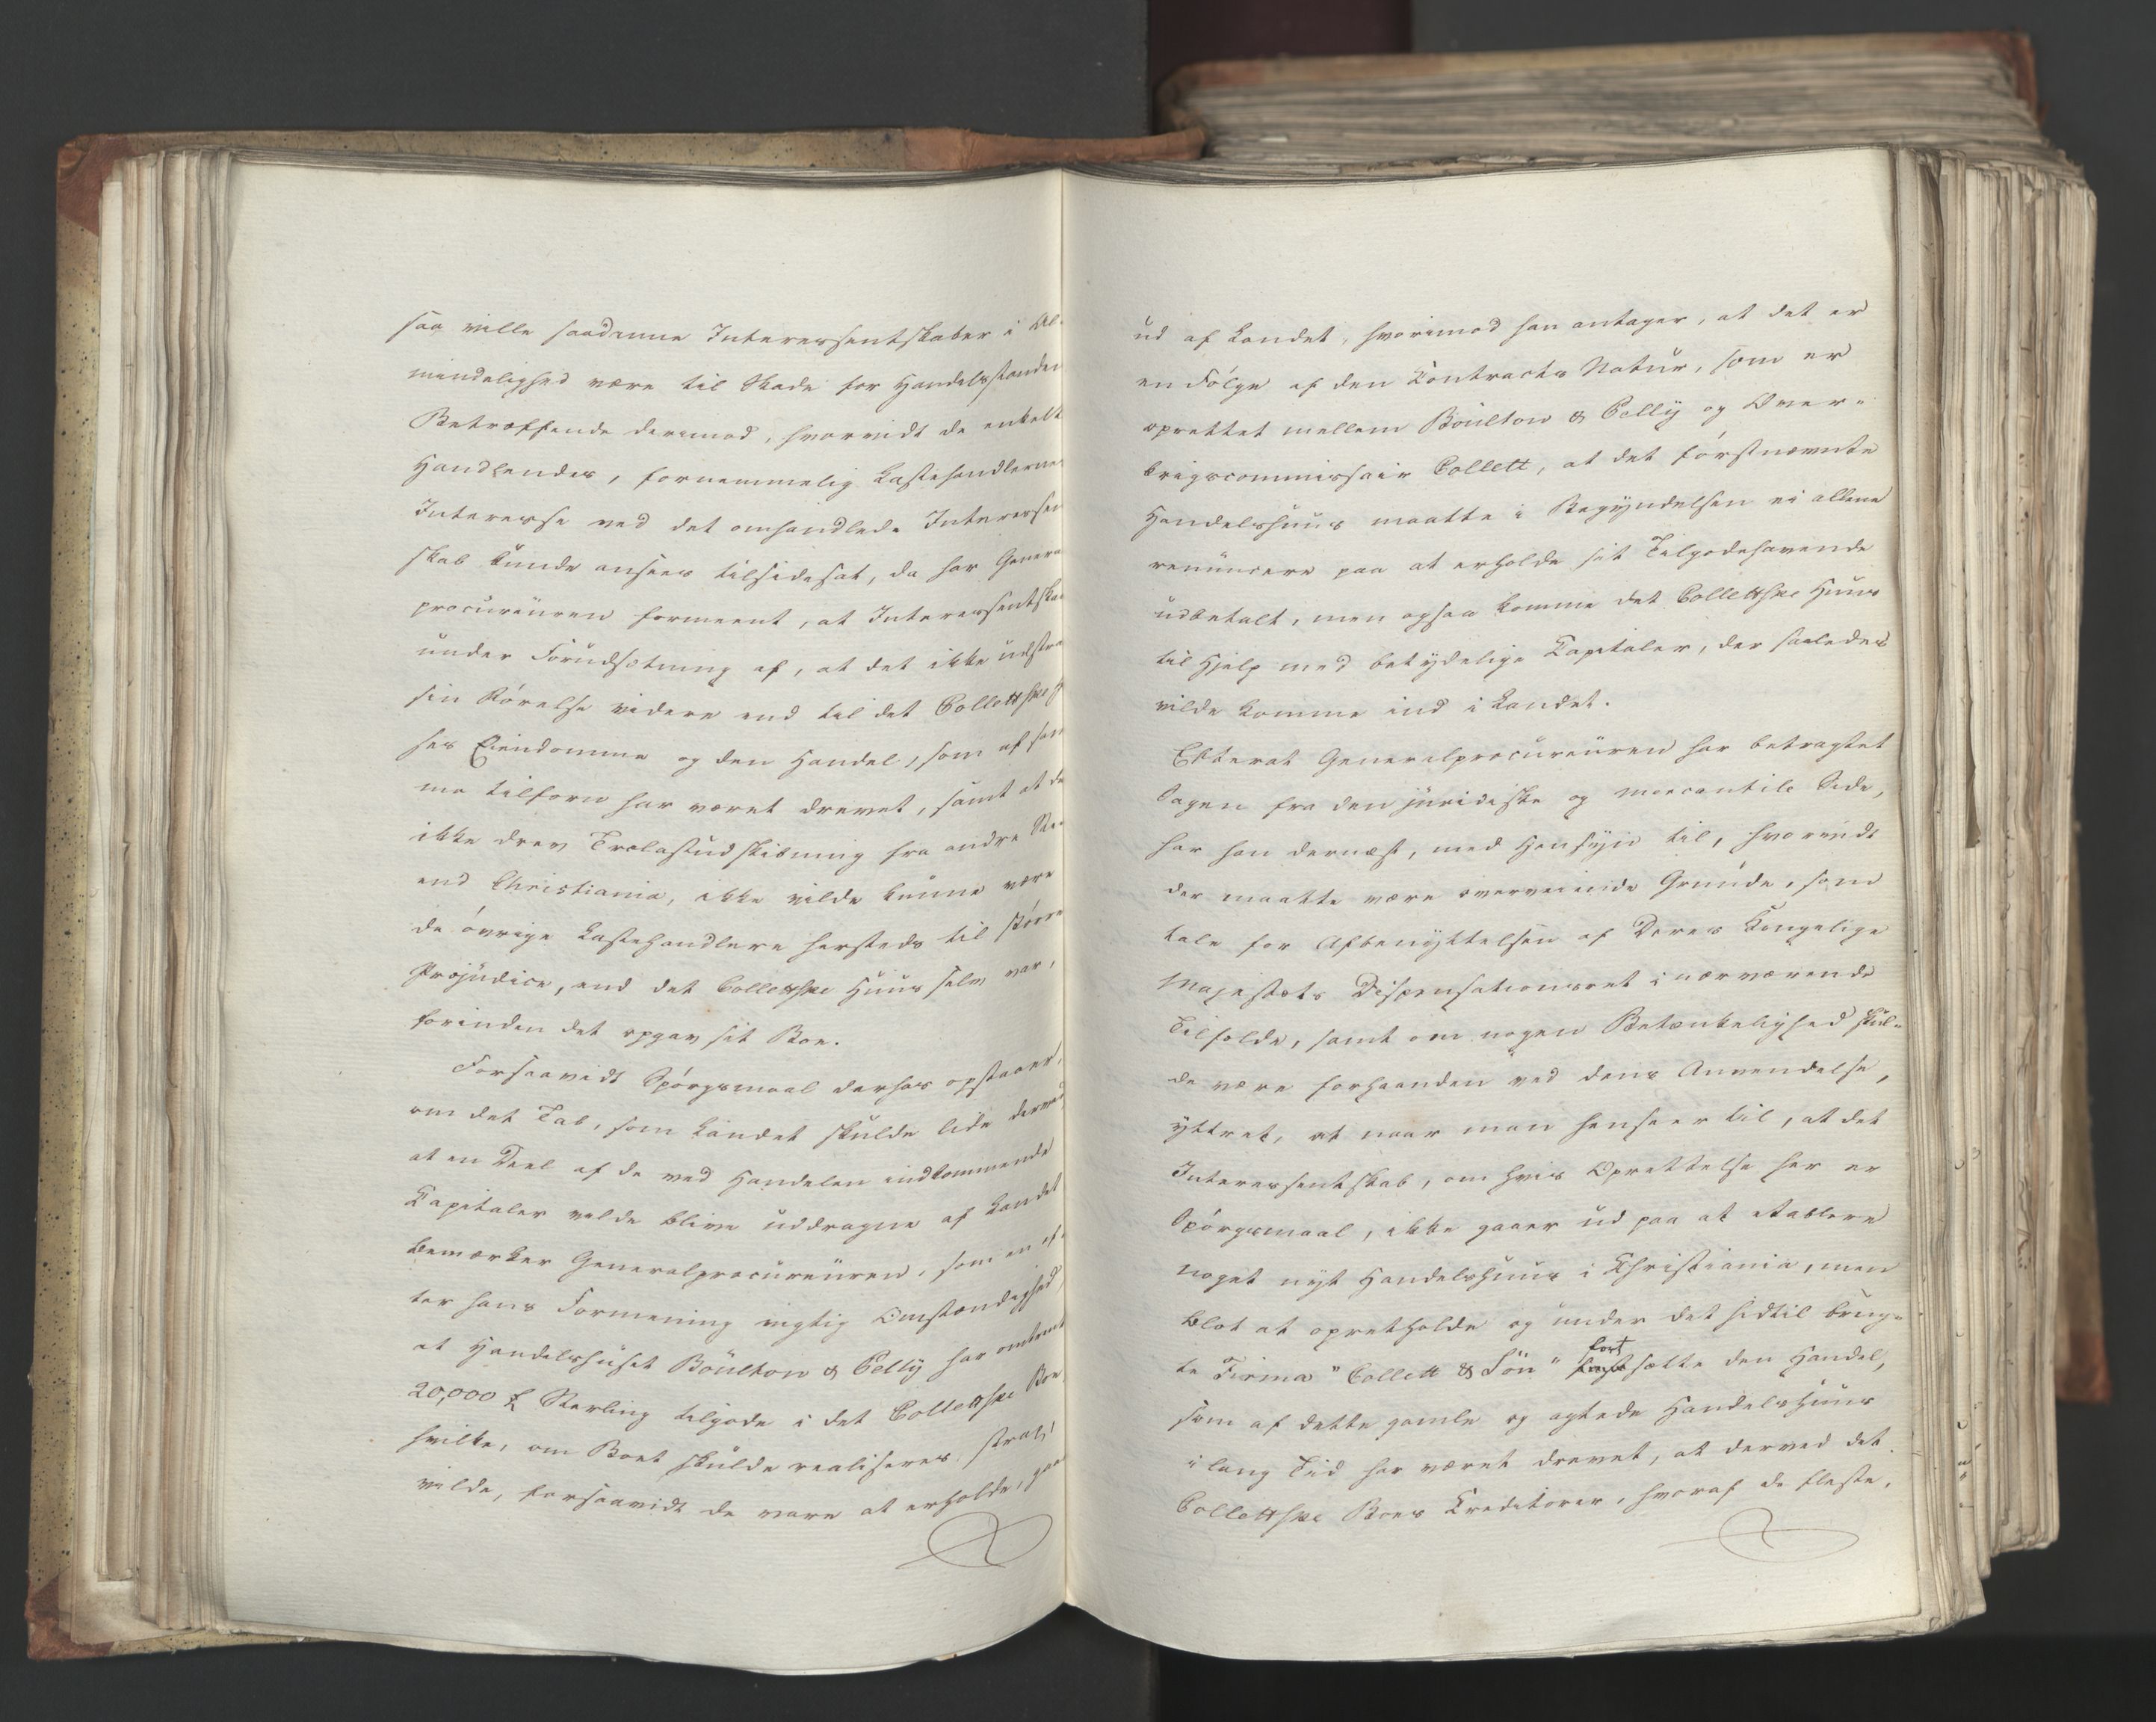 saa ville saadanne Interessentskaber i Al-
mindelighed være til Skade for Handelsstanden
Betræffende derimod, hvorvidt de enkelt
Handlendes, fornemmelig Lasthandlernes
Interesse ved det omhandlede Interessen
skab kunde ansees tilsidesat, da har Genera
procureuren formeent, at Interessentska
under Forudsætning af, at det ikke udstra
sin Rörelse videre end til det Collettske H
ses Eiendomme og den Handel, som af sam
me tilforn har været drevet, samt at de
ikke drev Trælastudskibning fra andre Ste-
end Christiania, ikke vilde kunne være
de övrige Lasthandlere hersteds til större
Præjudice, end det Collettske Huus selv var,
forinden det opgav sit Boe.
Forsaavidt Spörgsmaal derhos opstaaer,
om det Tab, som Landet skulde lide derved
at en Deel af de ved Handelen indkommende
Capitaler vilde blive uddragne af Landet
bemærker Generalprocureuren, som en ef-
ter hans Formening vigtig Omstændighed,
at Handelshuset Boulton & Pelly har omtrent
20,000 £ Sterling tilgode i det Collettske Boe,
hvilke, om Boet skulde realiseres strax,
vilde, forsaavidt de vare at erholde, gaa
ud af Landet, hvorimod han antager, at det er
en Fölge af den Contracts Natur, som er
oprettet mellem Boulton & Pelly og Over-
krigscommissair Collett, at det förstnævnte
Handelshuus maatte i Begyndelsen ei allene
renuncere paa at erholde sit Tilgodehavende
udbetalt, men ogsaa komme det Collettske Huus
til Hjelp med betydelige Capitaler, der saaledes
vilde komme ind i Landet.
Efterat Generalprocureuren har betragtet
Sagen fra den juridiske og mercantile Side,
har han dernæst, med Hensyn til, hvorvidt
der maatte være overveiende Grunde, som
tale for Afbenyttelsen af Deres Kongelige
Majestæts Dispensationsret i nærværende
Tilfælde, samt om nogen Betænkelighed skul-
de være forhaanden ved dens Anvendelse,
yttret, at naar man henseer til, at det
Interessentskab, om hvis Oprettelse her er
Spörgsmaal, ikke gaaer ud paa at etablere
noget nyt Handelshuus i Christiania, men
blot at opretholde og under det hidtil brug-
te Firma "Collett & Sön" fortsætte den Handel,
som af dette gamle og agtede Handelshuus
i lang Tid har været drevet, at derved det
Collettske Boes Creditorer, hvoraf de fleste,